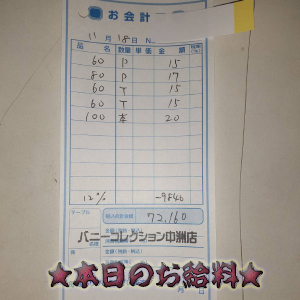 お会計
11月18日 No.
品名 数量 単価 金額
60 P 15
80 P 17
60 T 15
60 T 15
100 本 20
12% -9840
テーブル
72,160
バニーコレクション中洲店
名
様
★本日のお給料★